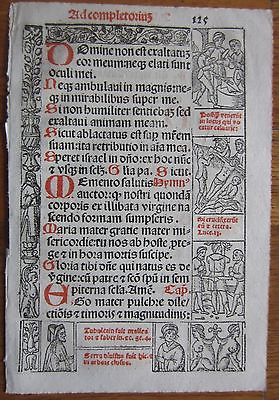 Ad completoriuʒ
115
Domine non est exaltatuʒ
cor meum:neqʒ elati sunt
oculi mei.
Neqʒ ambulaui in magnis:ne
qʒ in mirabilibus super me.
Si non humiliter sentiebaʒ:sed
exaltaui animam meam.
Sicut ablactatus est sup mr̄em
suam:ita retributio in aīa mea.
Speret israel in dn̄o:ex hoc nūc
⁊ vsqʒ in sclʒ. Gl̄ia pa. Sicut
Memento salutis
auctor:qꝫ nostri quondā
corporis ex illibata virgine na
scendo formam sumpseris.
Maria mater gratie mater mi
sericordie:tu nos ab hoste,pte
ge ⁊ in hora mortis suscipe.
Gloria tibi dn̄e qui natus es de
v̄gine:cū patre ⁊ sc̄o sp̄u in sem
piterna secla. Amē. Cap.
Ego mater pulchre dile
ctionis ⁊ timoris ⁊ magnitudinis:
Postqʒ venerūt
in locuʒ qui vo
catur caluarie:
Ibi crucifixerūt
eū ⁊ cetera.
Luce.23.
Tubalcain fuit mallea
tor ⁊ faber in. ge. 4.
Serra diuisus fuit hic:
in arbore clusus.